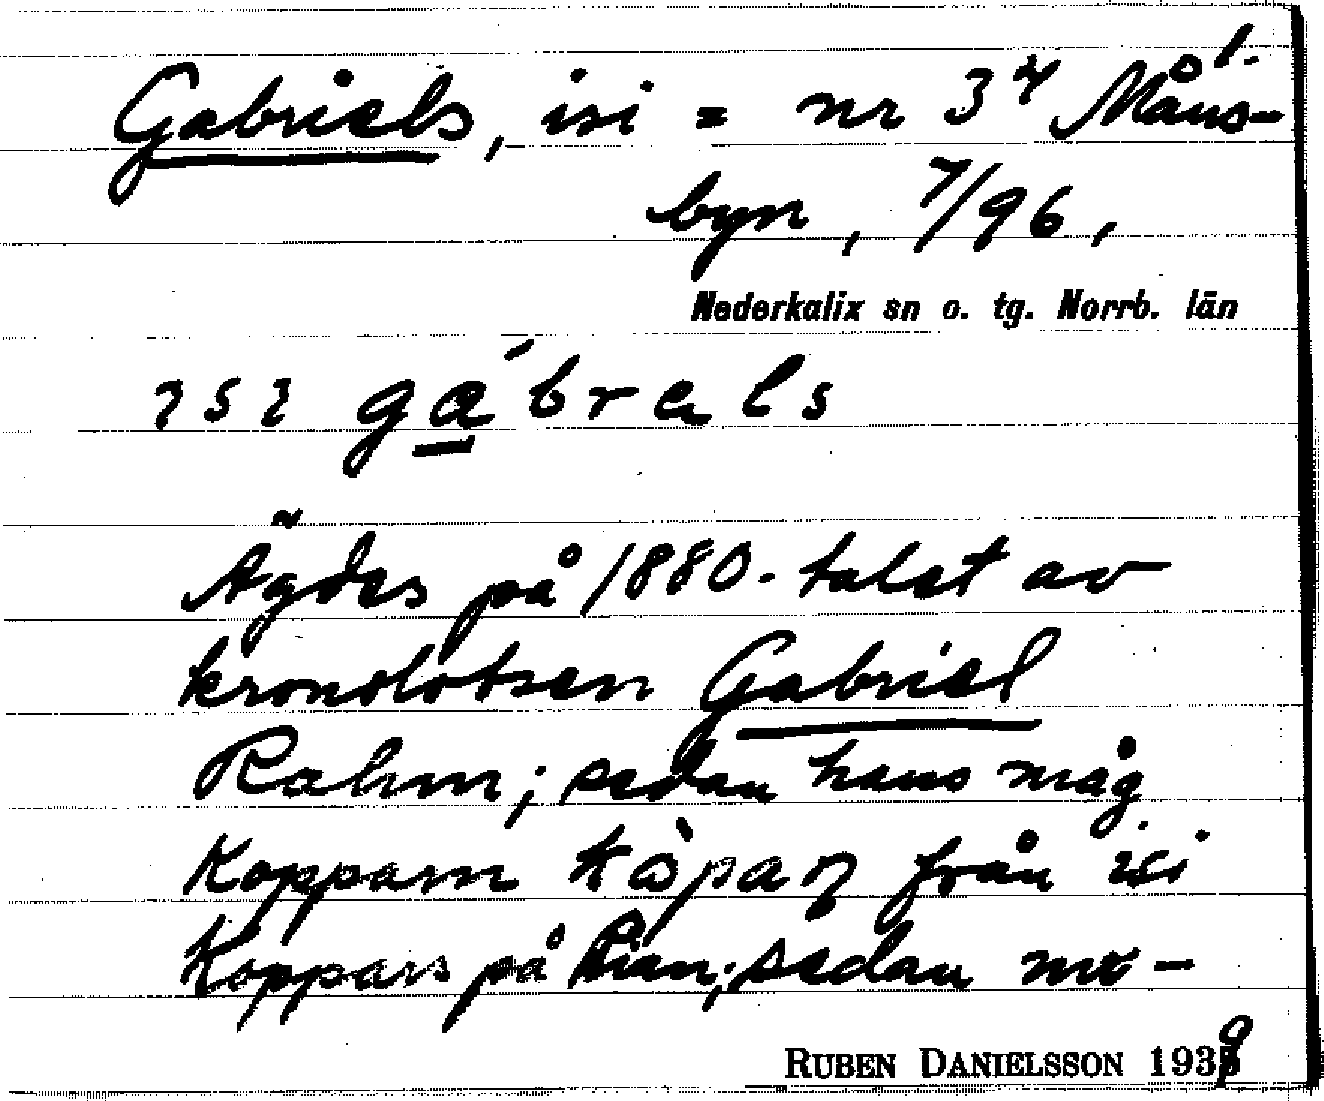 1.
Gabriels, isi = nr 3⁴ Måns-
byn, 7/96,
Nederkalix sn o. tg. Norrb. län
ɿsɿ gábrals
Ägdes på 1880-talet av
kronolotsen Gabriel
Rahm; sedan hans måg
Kopparn kòpaɳ från isi
Koppars på Rian; sedan mo-
RUBEN DANIELSSON 1939